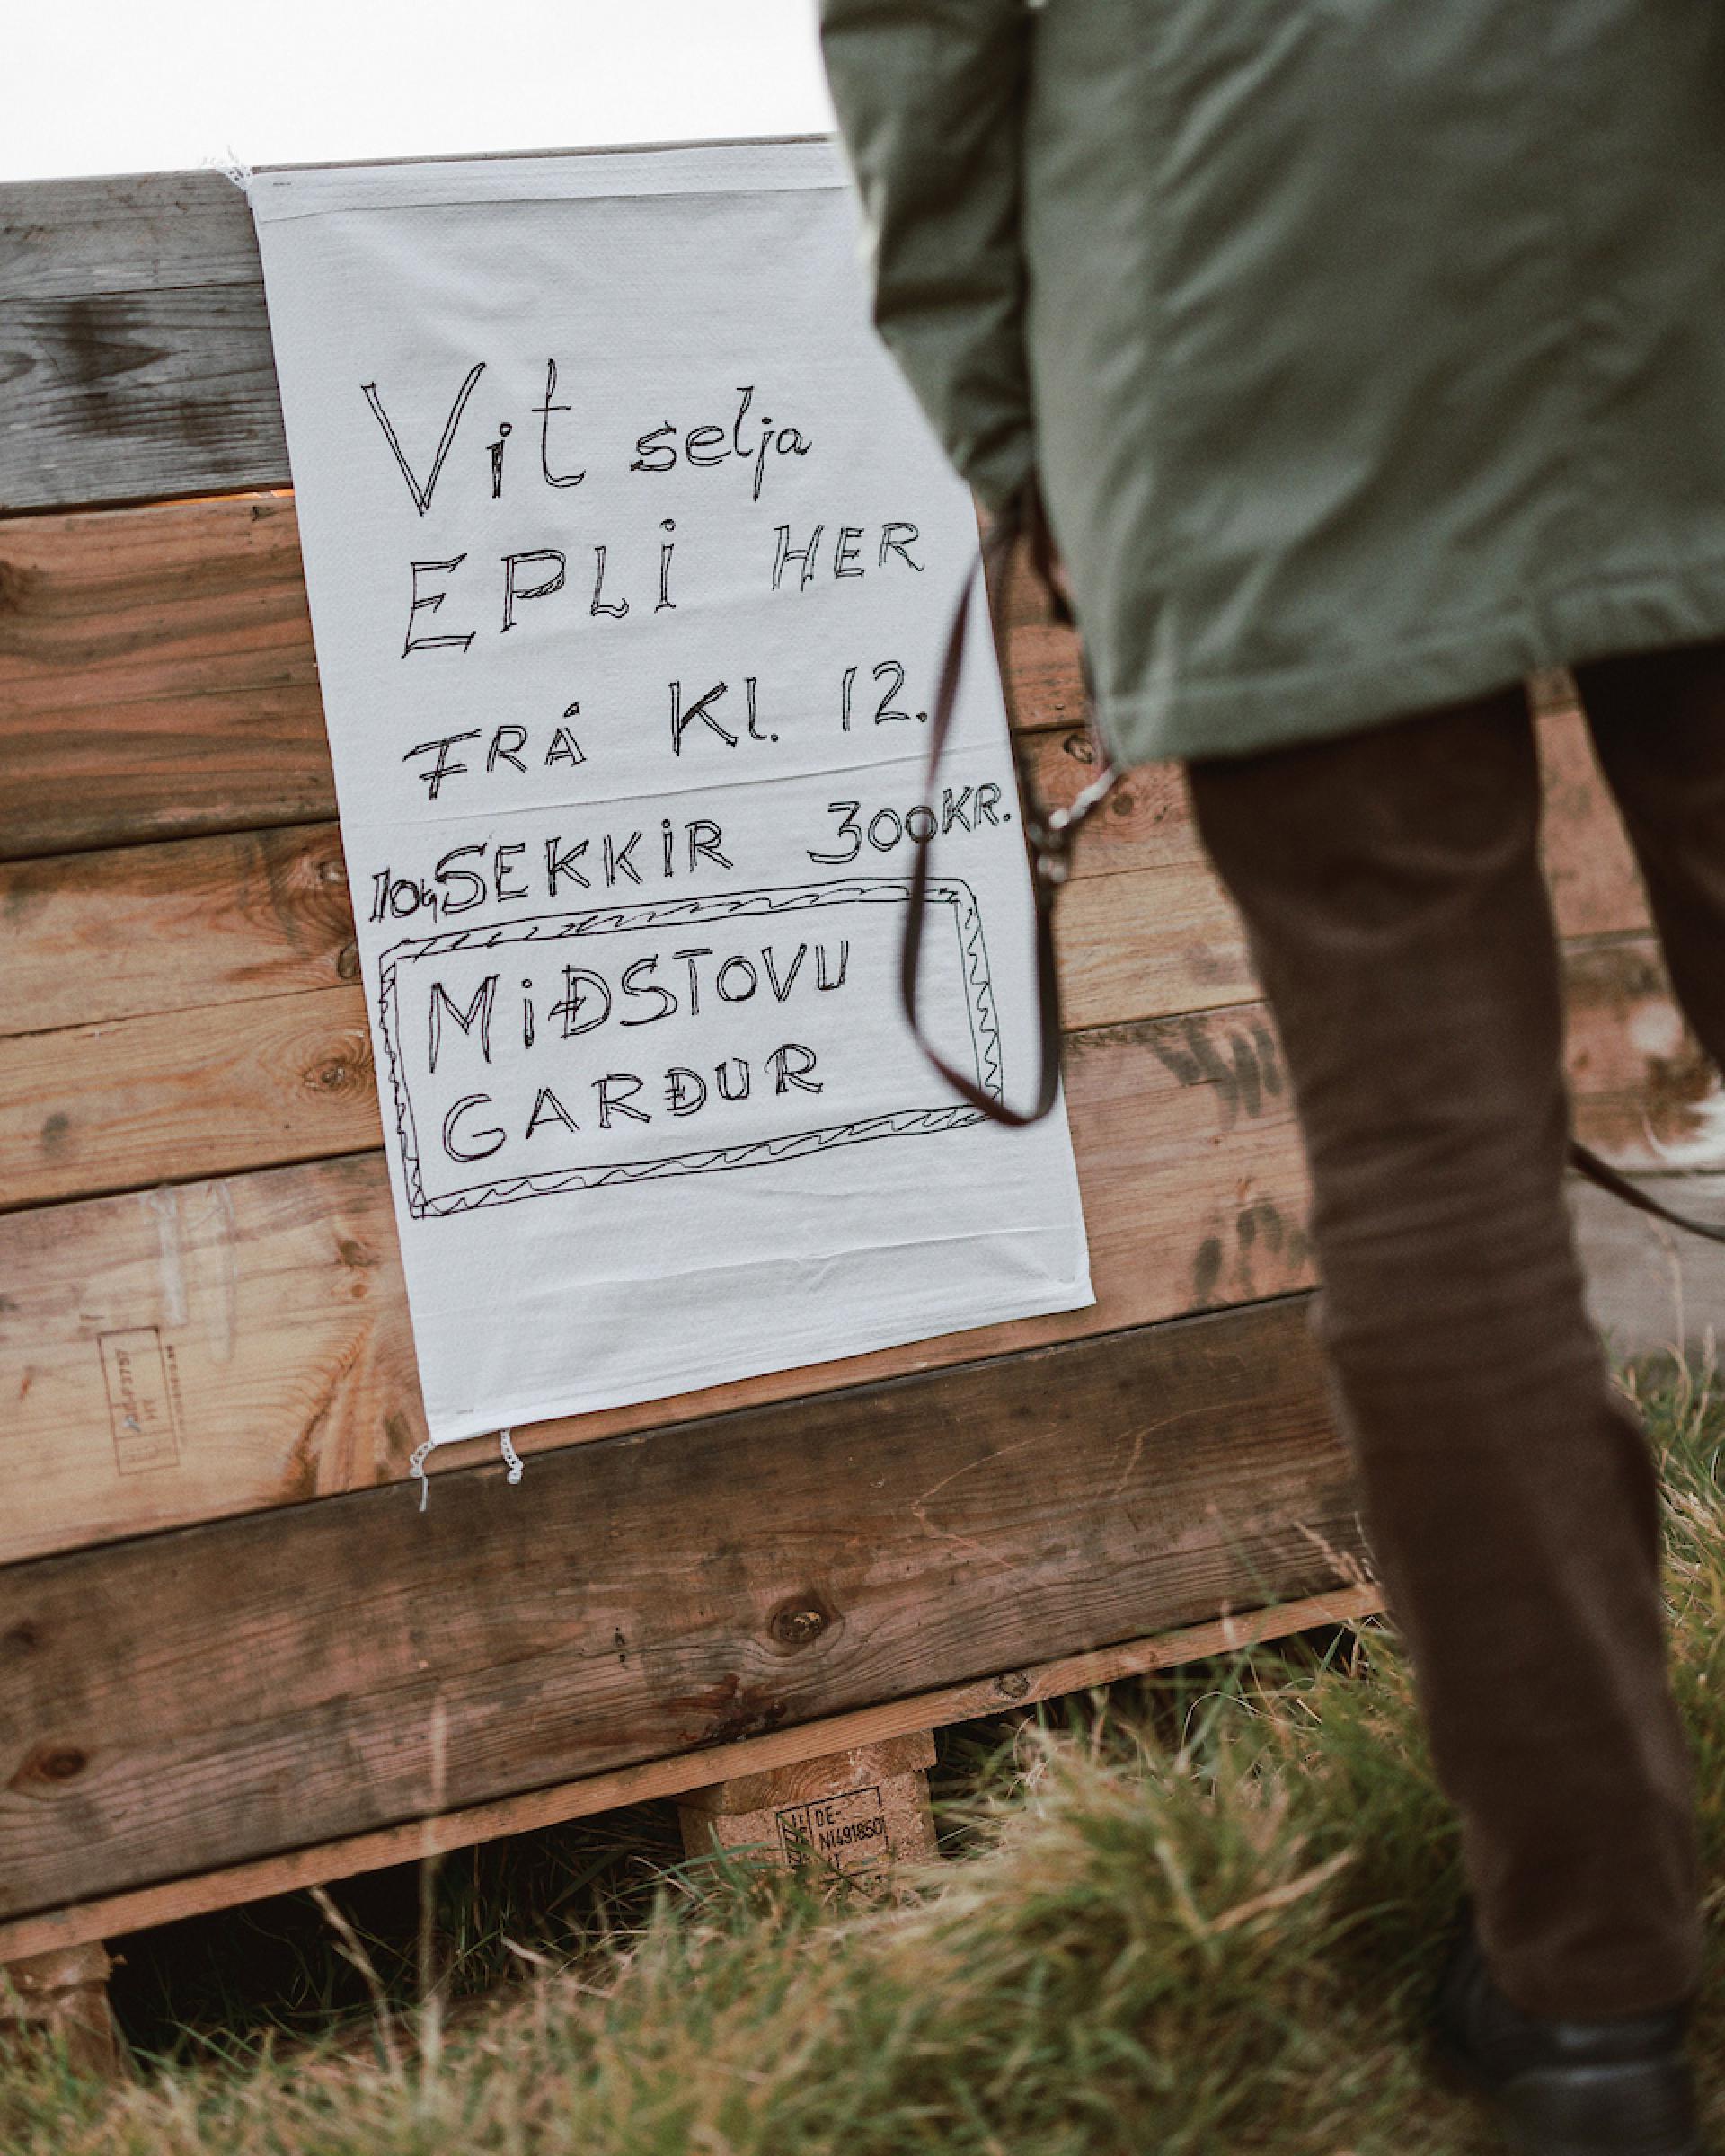 Vit selja
EPLi HER
FRÁ Kl. 12.
SEKKiR 300KR.
MiÐSTOVU
GARÐUR
DE-